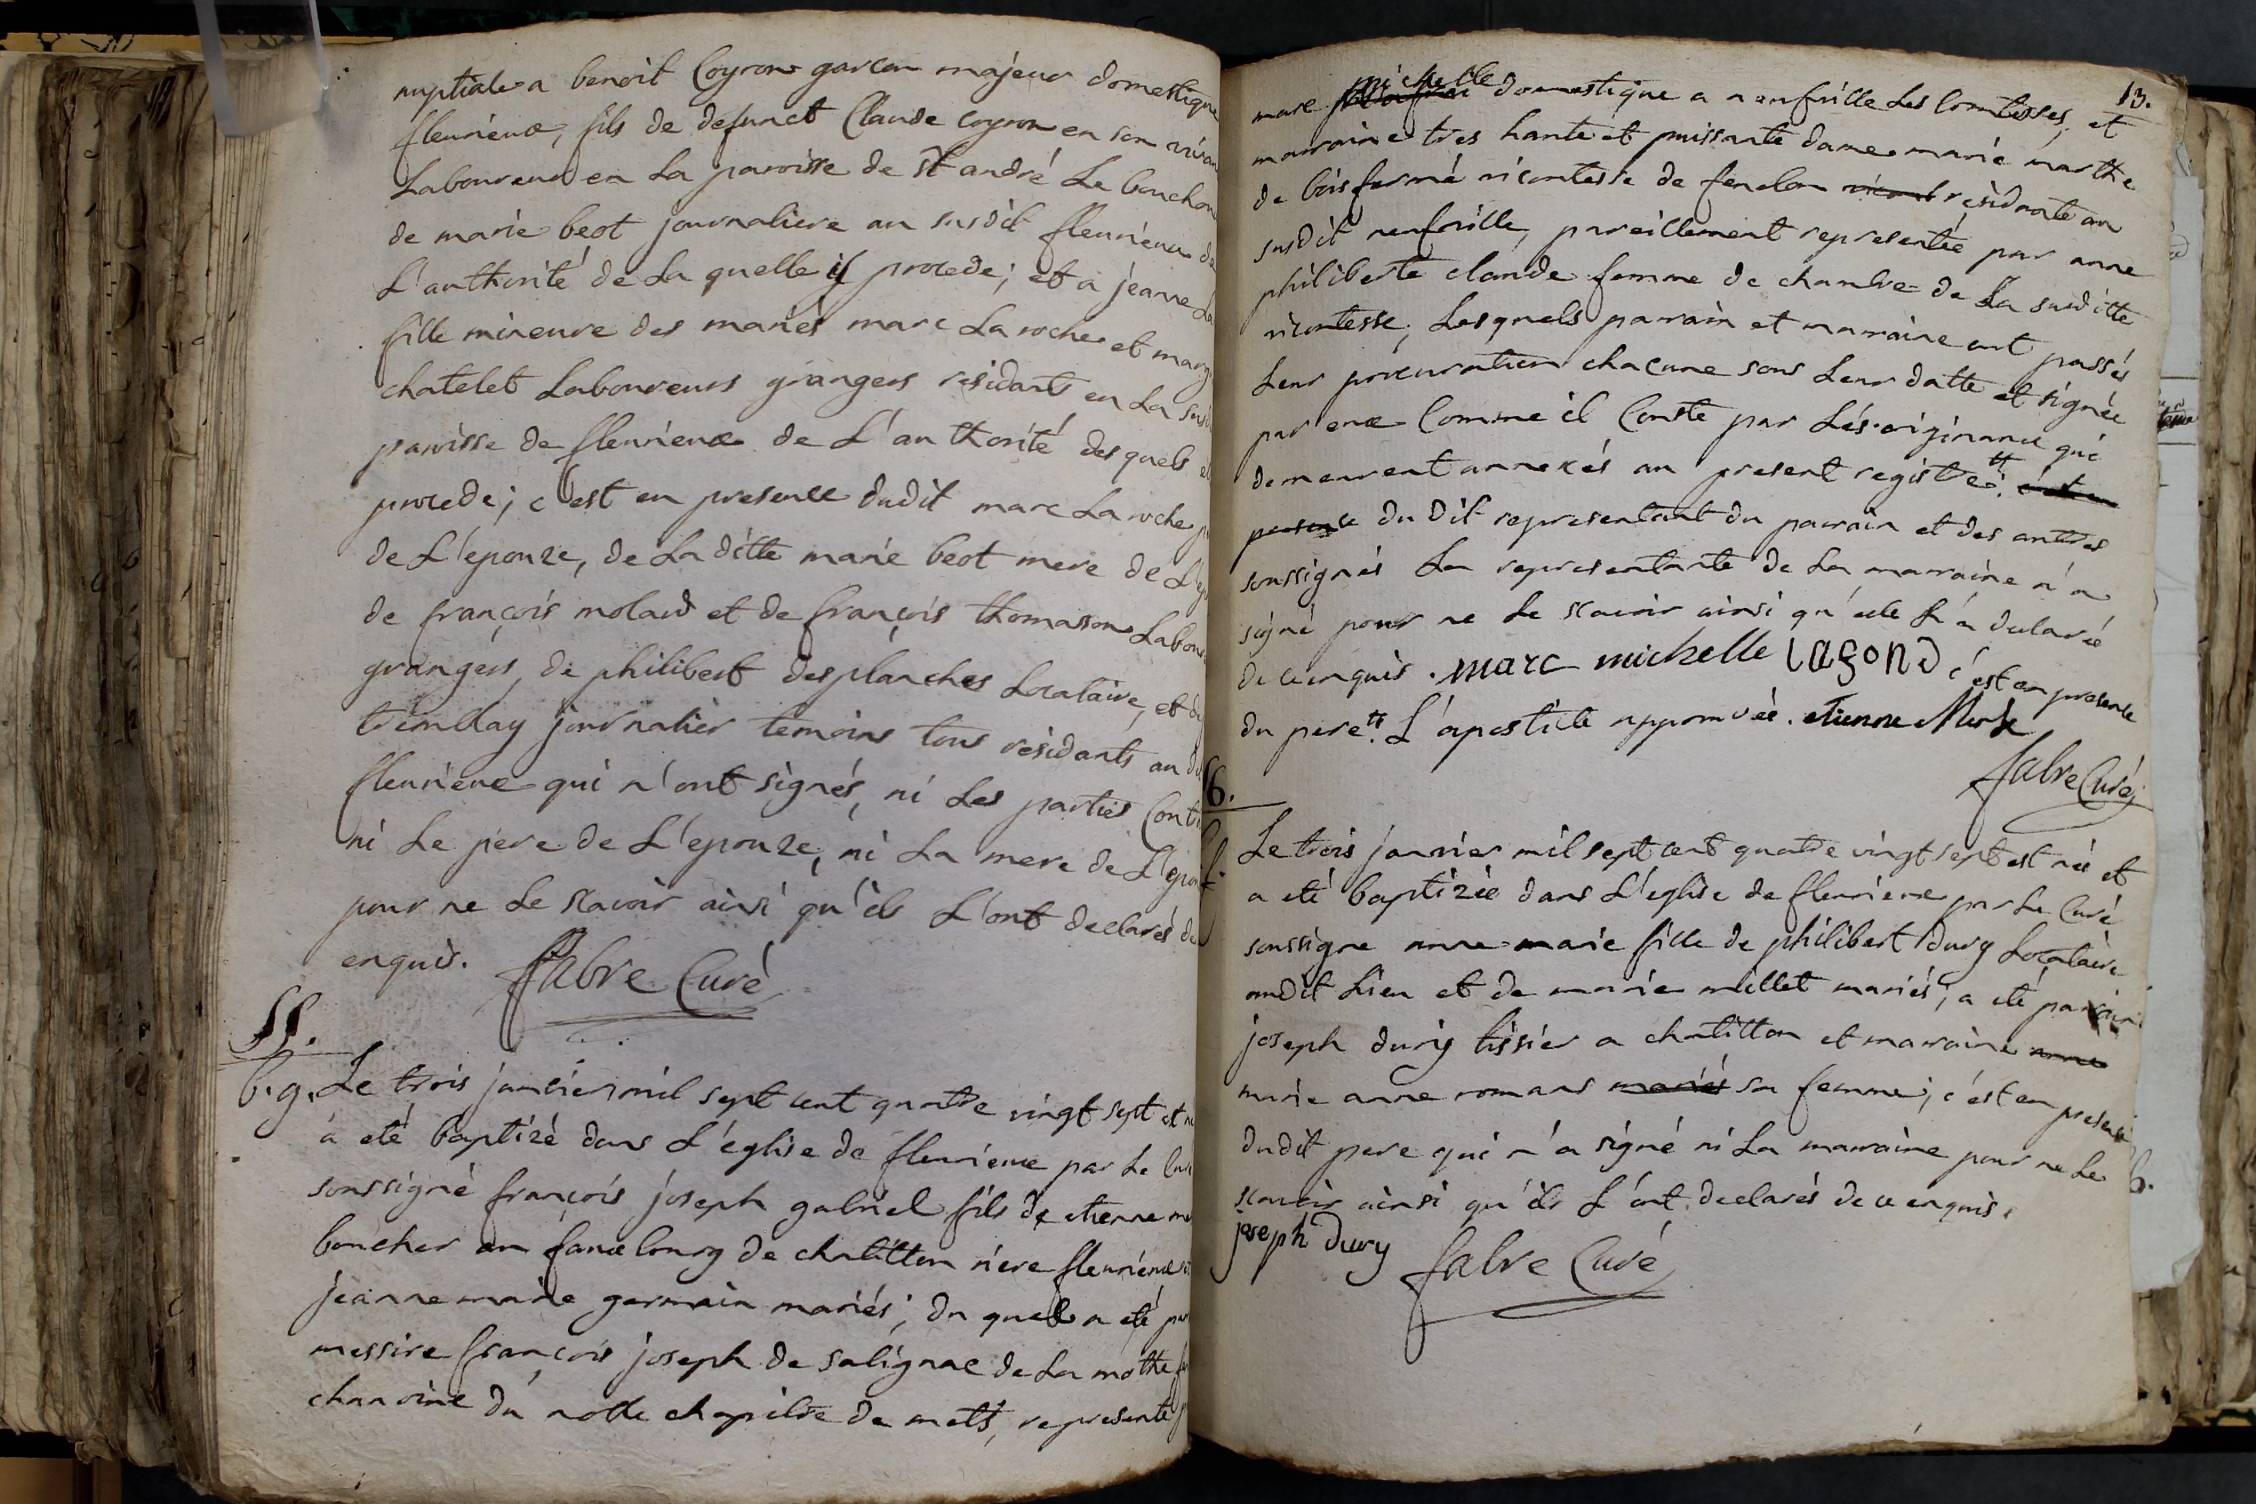 nuptiale a benoit Coyron garcon majeur domestique
fleurieux, fils de defunct Claude coyron en son vivan
Laboureur en La paroisse de st andré Le bouchou
de marie beot journaliere au susdit fleurieux de
L'authorité de La quelle il procede; et a jeanne La
fille mineure des mariés marc La roche et marg
chatelet Laboureurs grangers residants en La sus
paroisse de fleurieux de L'authorité des quels el
procede; c'est en presence dudit marc La roche p
de L'epouze, de La ditte marie beot mere de L'ep
de françois molard et de françois thomasson Labou
grangers, de philibert desplanches Locataire, et de
tremblay journalier temoins tous residants au d
fleurieux qui n'ont signés, ni Les parties Cont
ni Le pere de L'epouze, ni La mere de L'epou
pour ne Le scavoir ainsi qu'ils L'ont declarés de
enquis. fabre Curé
55.
b.g. Le trois janvier mil sept cent quatre vingt sept est n
a eté baptizé dans L'eglise de fleurieux par Le Cur
soussigné françois joseph gabriel fils de etienne me
boucher au faux bourg de chatillon riere fleurieux
jeanne marie germain mariés; du quel a eté par
messire françois joseph de salignac de La mothe fe
chanoine du noble chapitre de mets, representé p
13.
marc michelle domestique a neufville Les Comtesses, et
marraine tres haute et puissante dame marie marthe
de boisfermé vicontesse de fenelon residante au
susdit neufville, pareillement representée par anne
philiberte claude femme de chambre de La susditte
vicontesse; Lesquels parrain et marraine ont passés
Leur procuration chacune sous Leur datte et signée
par eux Comme il Conste par Les originaux qui
demeurent annexés au present registre; tt c'est en
presence du dit representant du parrain et des autres
soussignés La representante de La marraine n'a
signé pour ne Le scavoir ainsi qu'elle L'a declarée
de ce enquis. marc michelle Lagond c'est en presence
du pere tt. L'apostille approuvée. etienne Merle
fabre Curé
56.
b.f. Le trois janvier mil sept cent quatre vingt sept est née et
a eté baptizée dans L'eglise de fleurieux par Le Curé
soussigne anne marie fille de philibert Dury Locataire
audit Lieu et de marie millet mariés; a eté parrain
joseph dury tissier a chatillon et marraine anne
marie anne romans mariés sa femme; c'est en presence
dudit pere qui n'a signé ni La marraine pour ne Le
scavoir ainsi qu'ils L'ont declarés de ce enquis.
joseph Dury fabre Curé
b.